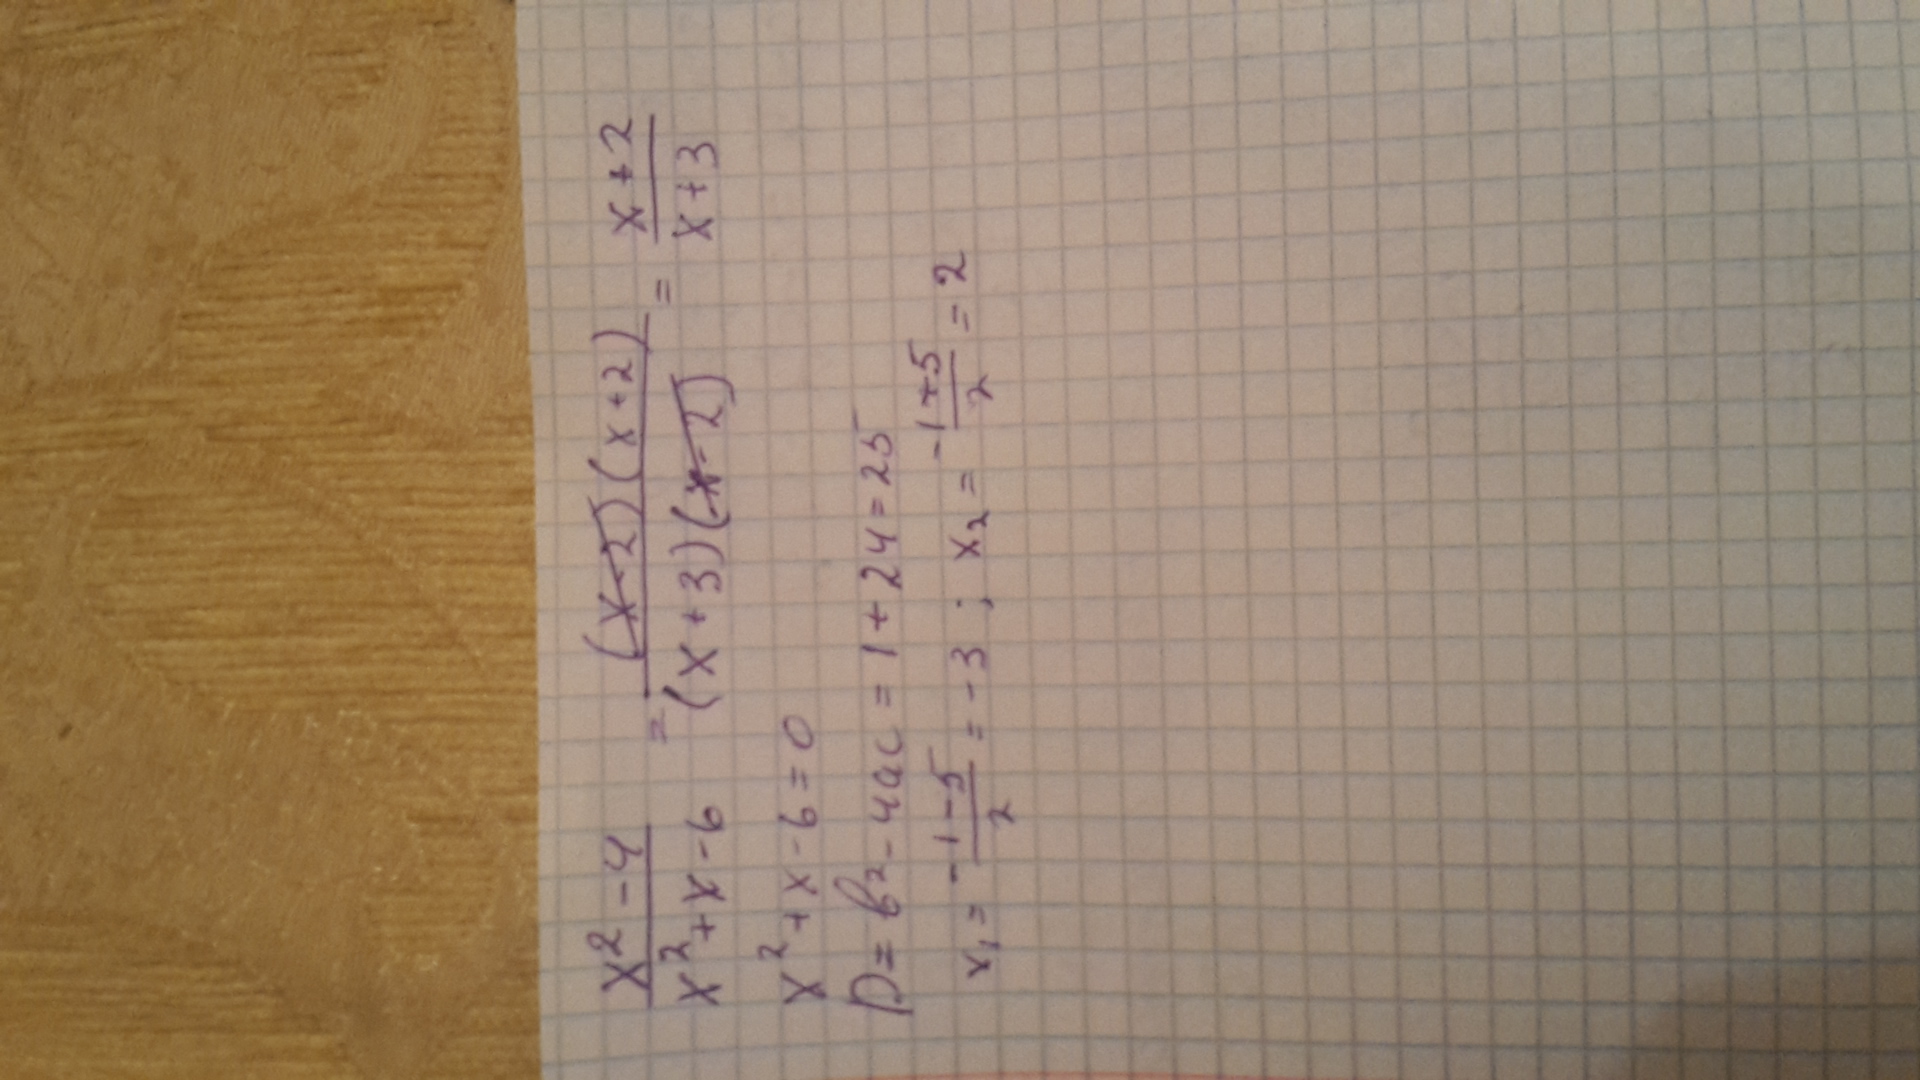 x² - 4 / x² + x - 6 = (x - 2)(x + 2) / (x + 3)(x - 2) = x + 2 / x + 3
x² + x - 6 = 0
D = b² - 4ac = 1 + 24 = 25
x₁ = -1 - 5 / 2 = -3 ; x₂ = -1 + 5 / 2 = 2